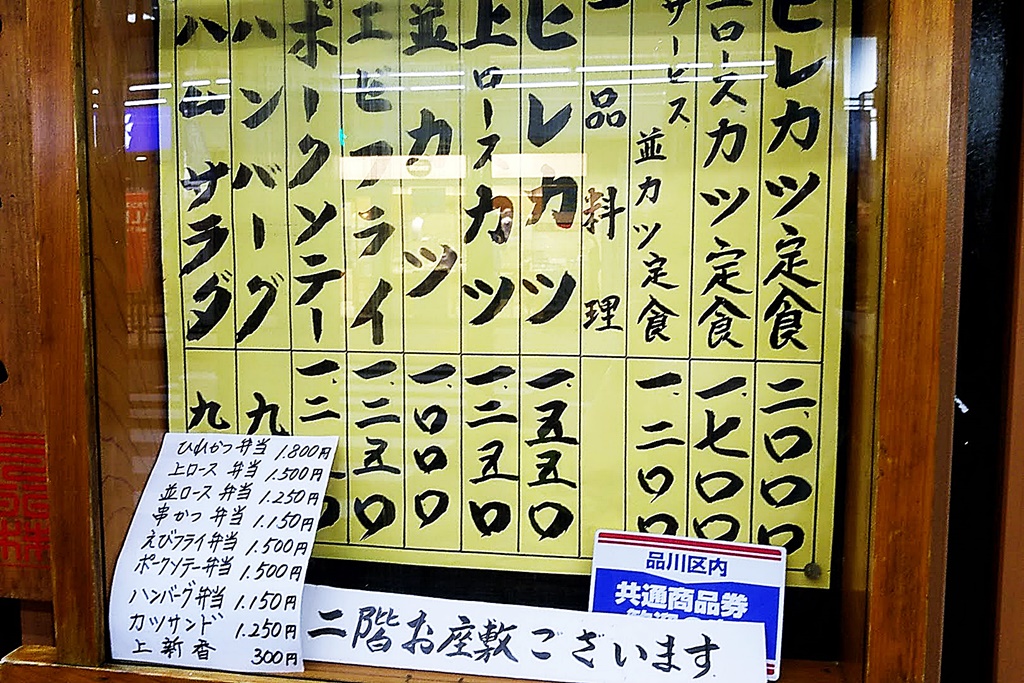 ヒレカツ定食 二、〇〇〇
上ロースカツ定食 一、七〇〇
サービス 並カツ定食 一、二〇〇
一品料理
ヒレカツ 一、五五〇
上ロースカツ 一、二五〇
並カツ 一、〇〇〇
エビフライ 一、二五〇
ポークソテー 一、二
ハンバーグ 九
ハムサラダ 九
ひれかつ弁当 1.800円
上ロース弁当 1.500円
並ロース弁当 1.250円
串かつ弁当 1.150円
えびフライ弁当 1.500円
ポークソテー弁当 1.500円
ハンバーグ弁当 1.150円
カツサンド 1.250円
上新香 300円
品川区内
共通商品券
二階お座敷ございます